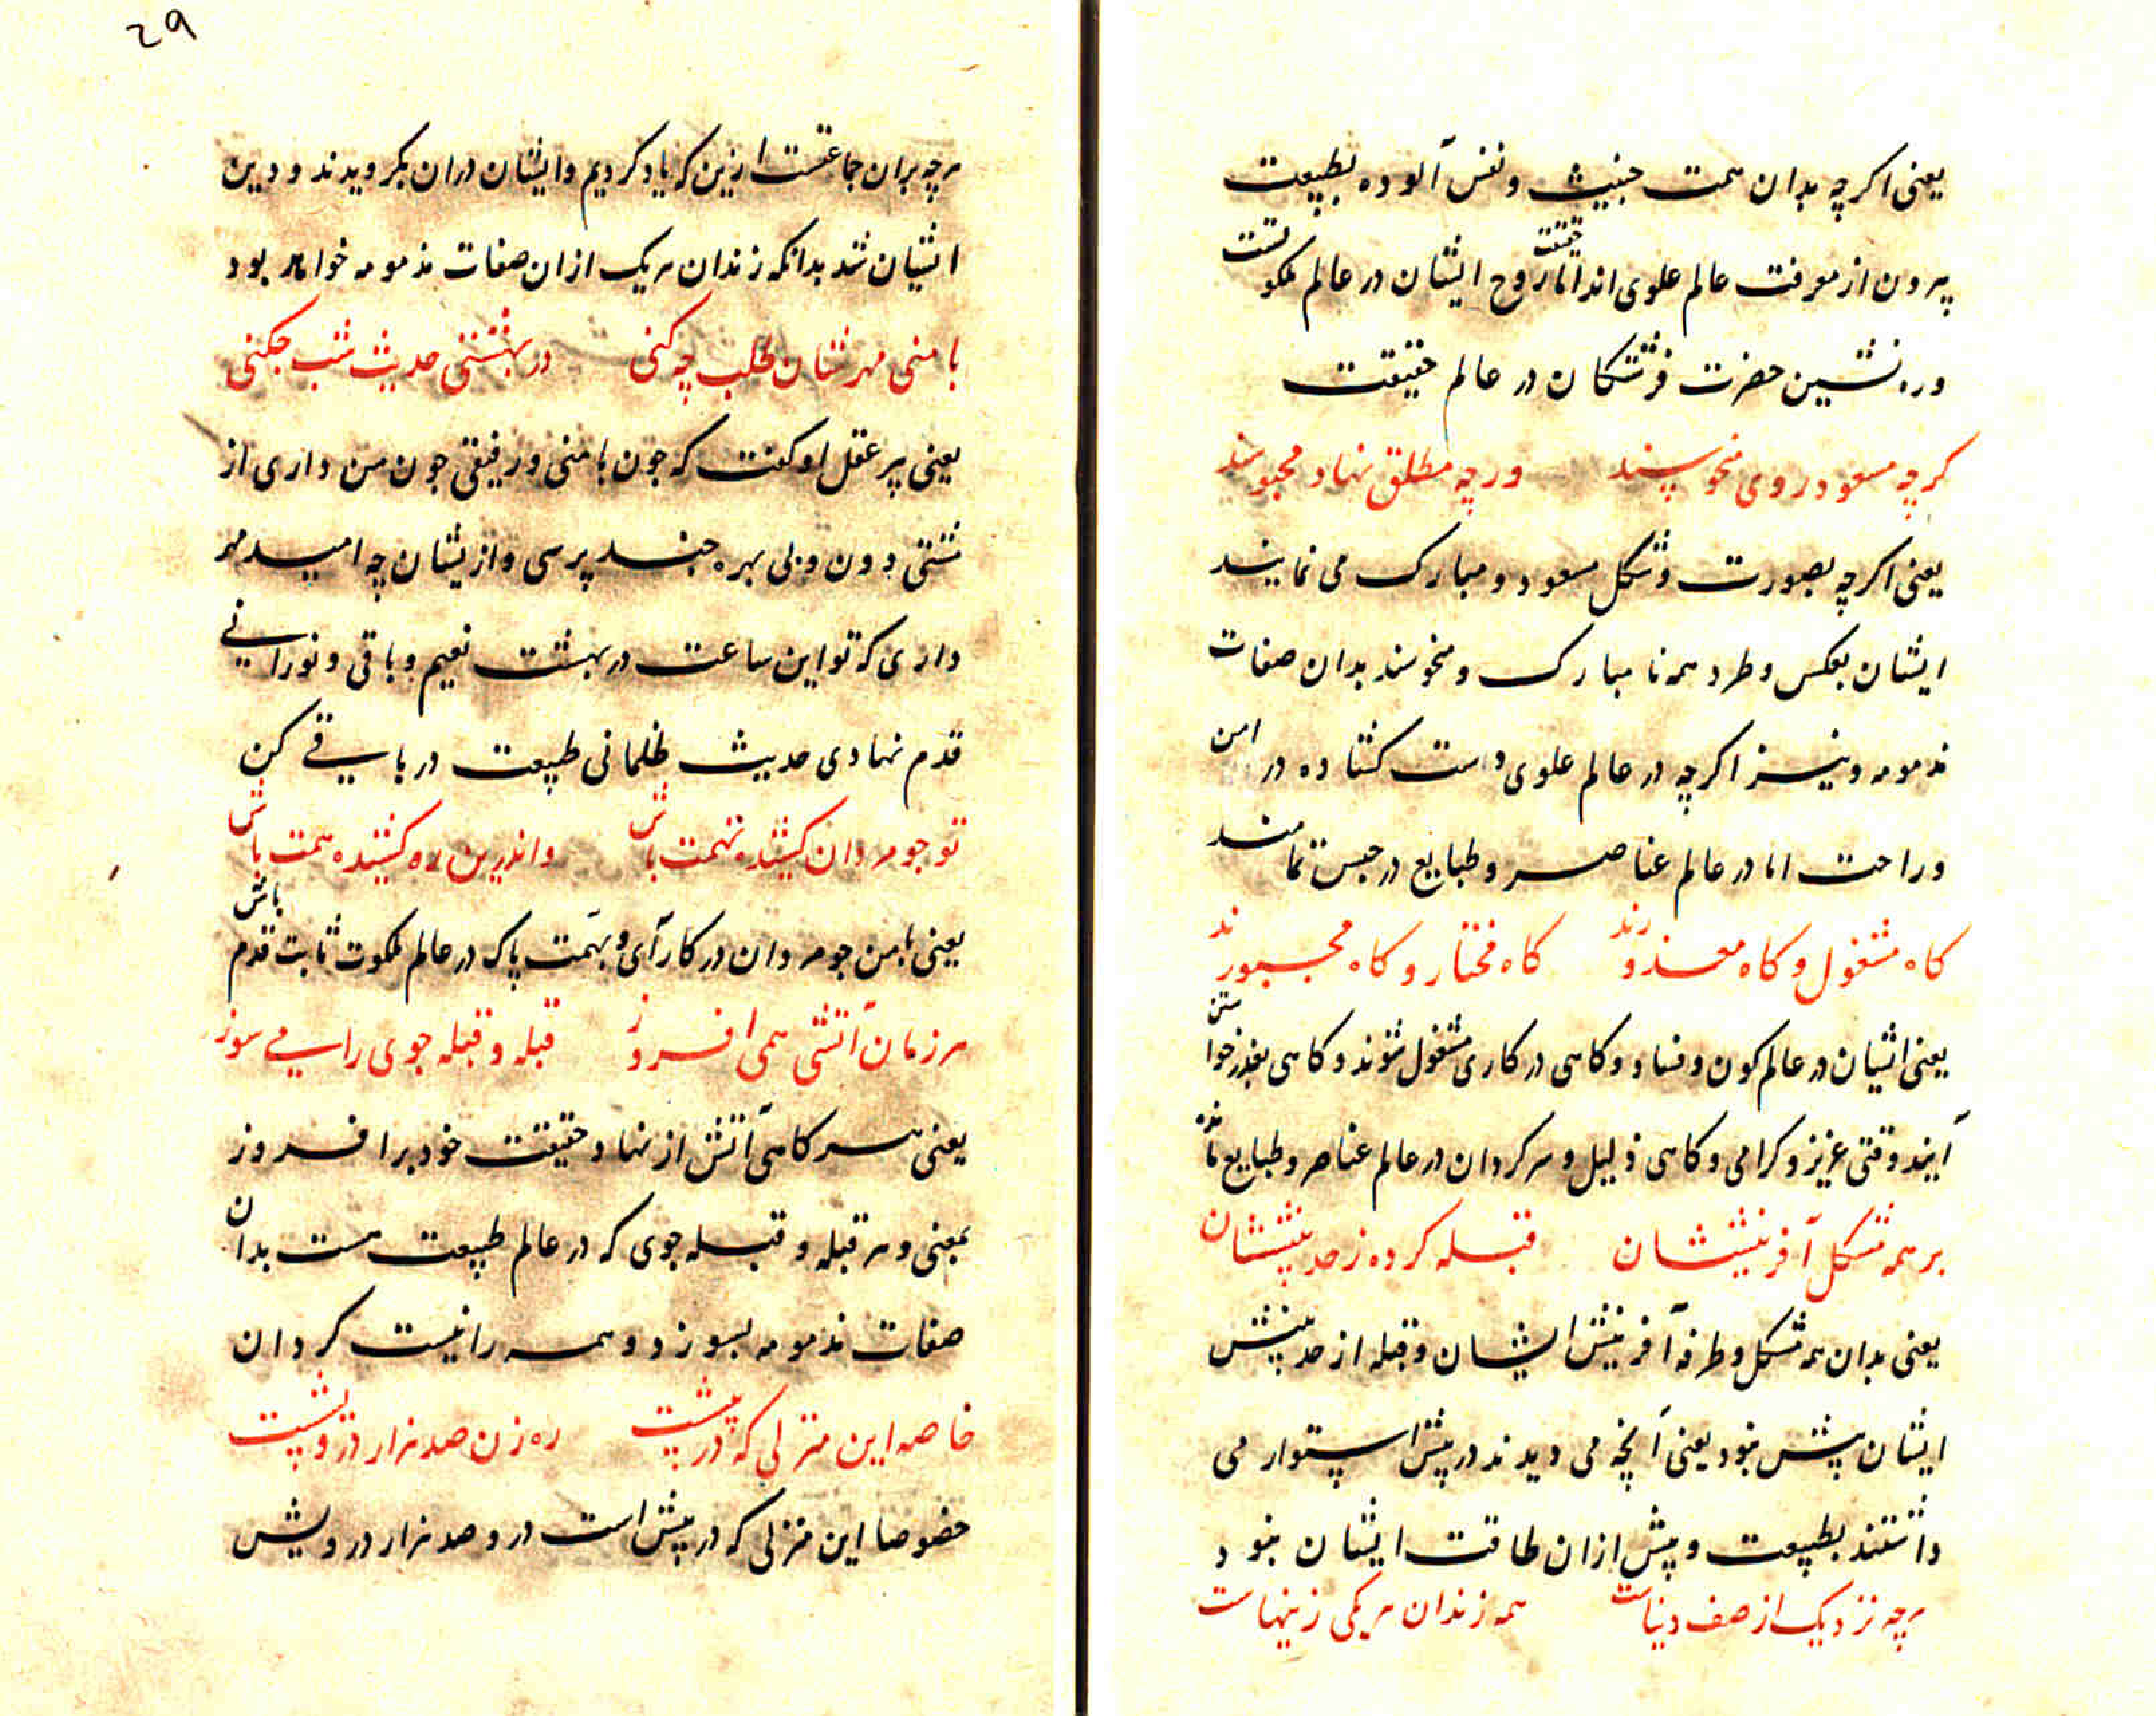 یعنی اکرچه بدان همت خبیث و نفس آلوده بطبیعت
بیرون از معرفت عالم علوی اند اما حقیقت روح ایشان در عالم ملکوتست
و ره نشین حضرت فرشتکان در عالم حقیقت
کرچه مسعود روی منحوسند ورچه مطلق نهاد محبوسند
یعنی اکرچه بصورت و شکل مسعود و مبارک می نمایند
ایشان بعکس و طرد همه نا مبارک و منحوسند بدان صفات
مذمومه و نیز اکرچه در عالم علوی دست کشاده در امن
و راحت اما در عالم عناصر و طبایع در حبس تمامند
کاه مشغول و کاه معذورند کاه مختار و کاه مجبورند
یعنی اشیان در عالم کون و فساد و کاهی در کاری مشغول شوند و کاهی بعذر خواستن
آیند و وقتی عزیز و کرامی و کاهی ذلیل و سرکردان در عالم عناصر و طبایع مانده
بر همه شکل آفرینششان قبله کرده ز حد بینششان
یعنی بدان همه شکل و طرفه آفرینش ایشان و قبله از حد بینش
ایشان بیش نبود یعنی آنچه می دیدند در پیش استوار می
داشتند بطبیعت و بیش ازان طاقت ایشان نبود
هرچه نزدیک از صف دنیاست همه زندان هر یکی زینهاست
۲۹
هرچه بران جماعتست ازین که یاد کردیم و ایشان دران بکرویدند و دین
اشیان شد بدانکه زندان هر یک ازان صفات مذمومه خواهد بود
با منی مهرشان طلب چه کنی در بهشتی حدیث شب چکنی
یعنی پیر عقل او کفت که چون با منی و رفیقی چون من داری از
مشتی دون و بی بهره چند پرسی و ازیشان چه امید مهر
داری که تو این ساعت در بهشت نعیم و باقی و نورانی
قدم نهادی حدیث ظلمانی طبیعت در باقی کن
تو چو مردان کشیده نهمت باش واندرین ره کشیده همت باش
یعنی با من چو مردان در کار آی و بهمت پاک در عالم ملکوت ثابت قدم باش
هر زمان آتشی همی افروز قبله و قبله جوی را می سوز
یعنی هر کاهی آتش از نهاد حقیقت خود بر افروز
بمعنی و هر قبله و قبله جوی که در عالم طبیعت هست بدان
صفات مذمومه بسوزد و همه را نیست کردان
خاصه این منزلی که در پیشست ره زن صد هزار درویشست
خصوصا این منزلی که در پیش است درو صد هزار درویش